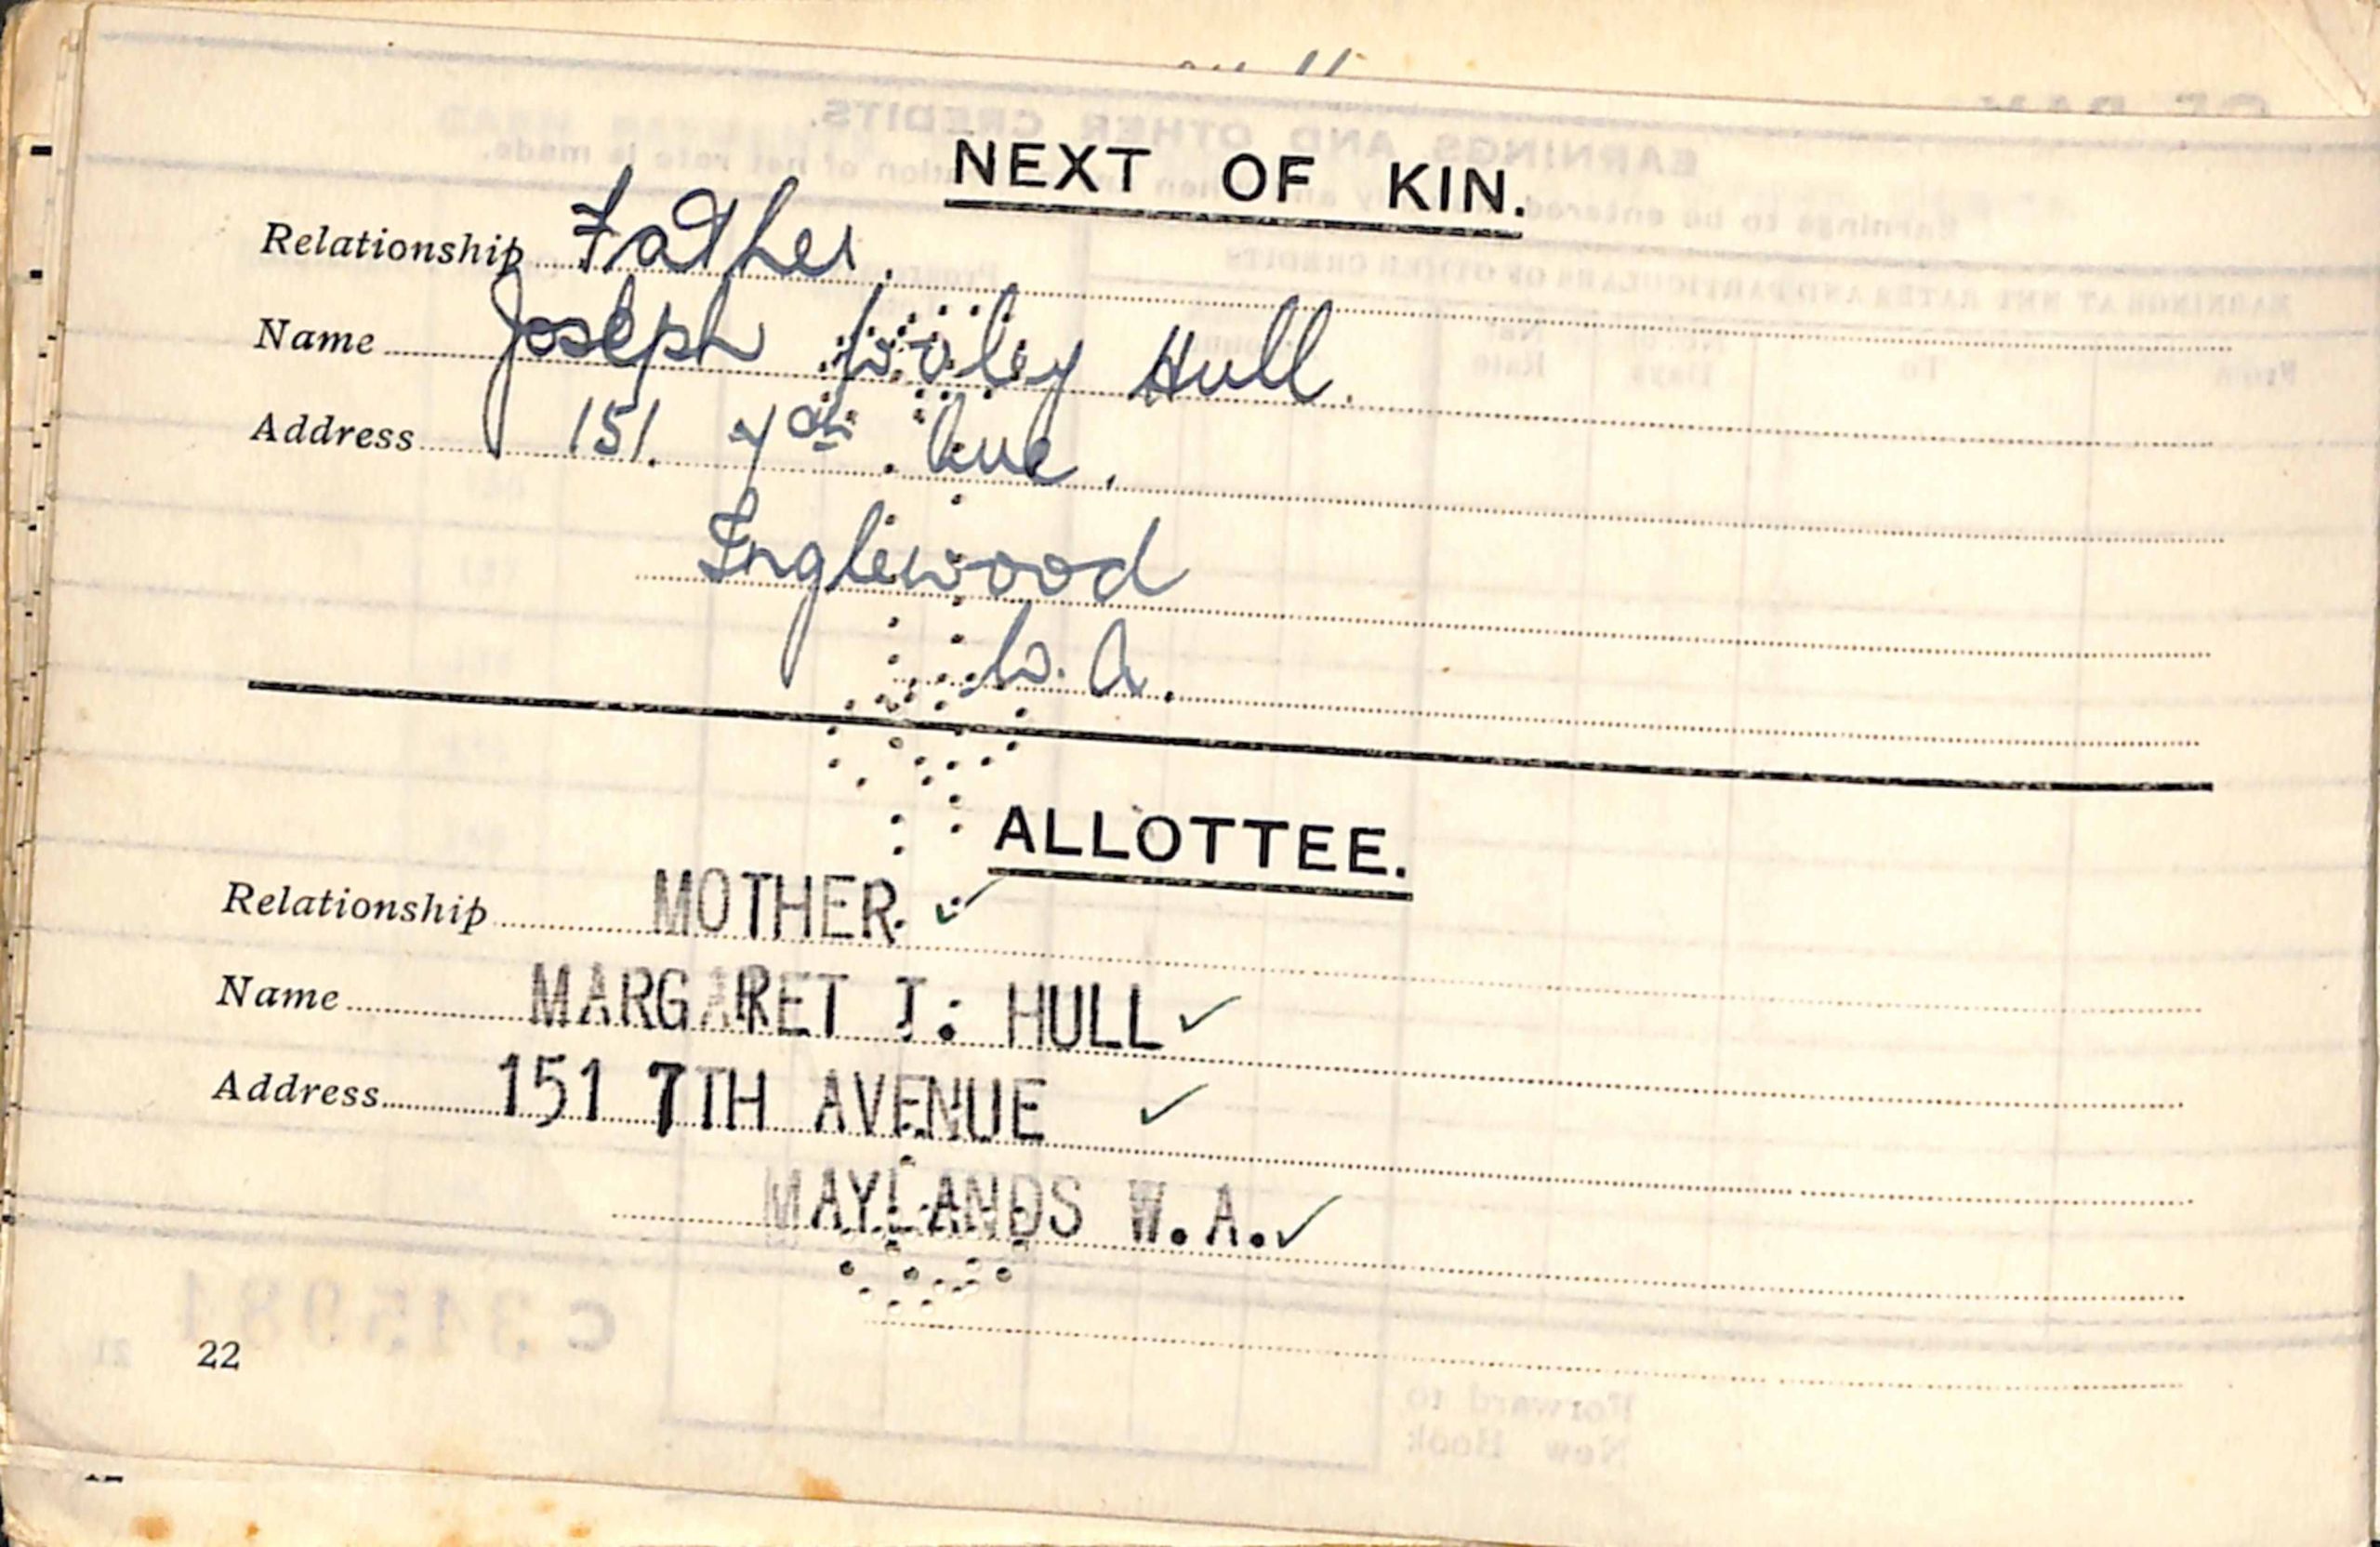 NEXT OF KIN.
Relationship Father.
Name Joseph Hull.
Address 151. 7th. Ave.
Inglewood
W.A.
ALLOTTEE.
Relationship MOTHER. ✓
Name MARGARET J. HULL ✓
Address 151 7TH AVENUE ✓
MAYLANDS W.A. ✓
C 315981
22
21
Forward to
New Book